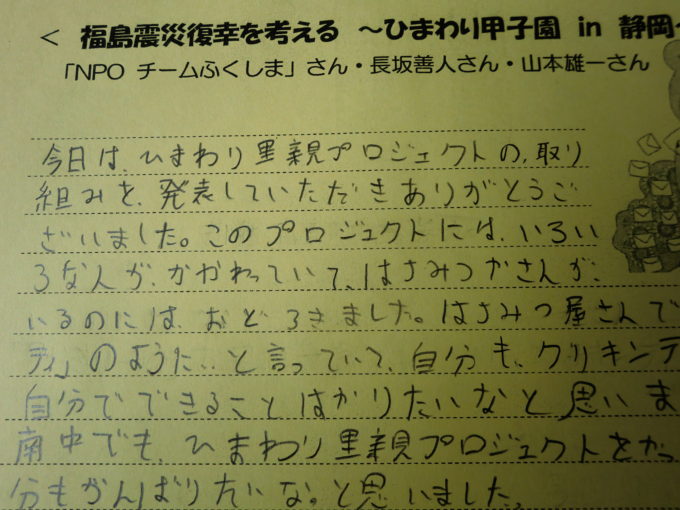 < 福島震災復幸を考える ～ひまわり甲子園 in 静岡～
「NPO チームふくしま」さん・長坂善人さん・山本雄一さん
今日は、ひまわり里親プロジェクトの、取り
組みを、発表していただきありがとうご
ざいました。このプロジェクトには、いろい
ろな人が、かかわっていて、はさみつかさんが、
いるのには、おどろきました。はさみつ屋さんで
ティ」のように…と言っていて、自分も、クリキンデ
自分でできることはかりたいなと思いま
南中でも、ひまわり里親プロジェクトをかっ
分もがんばりたいな。と思いました。